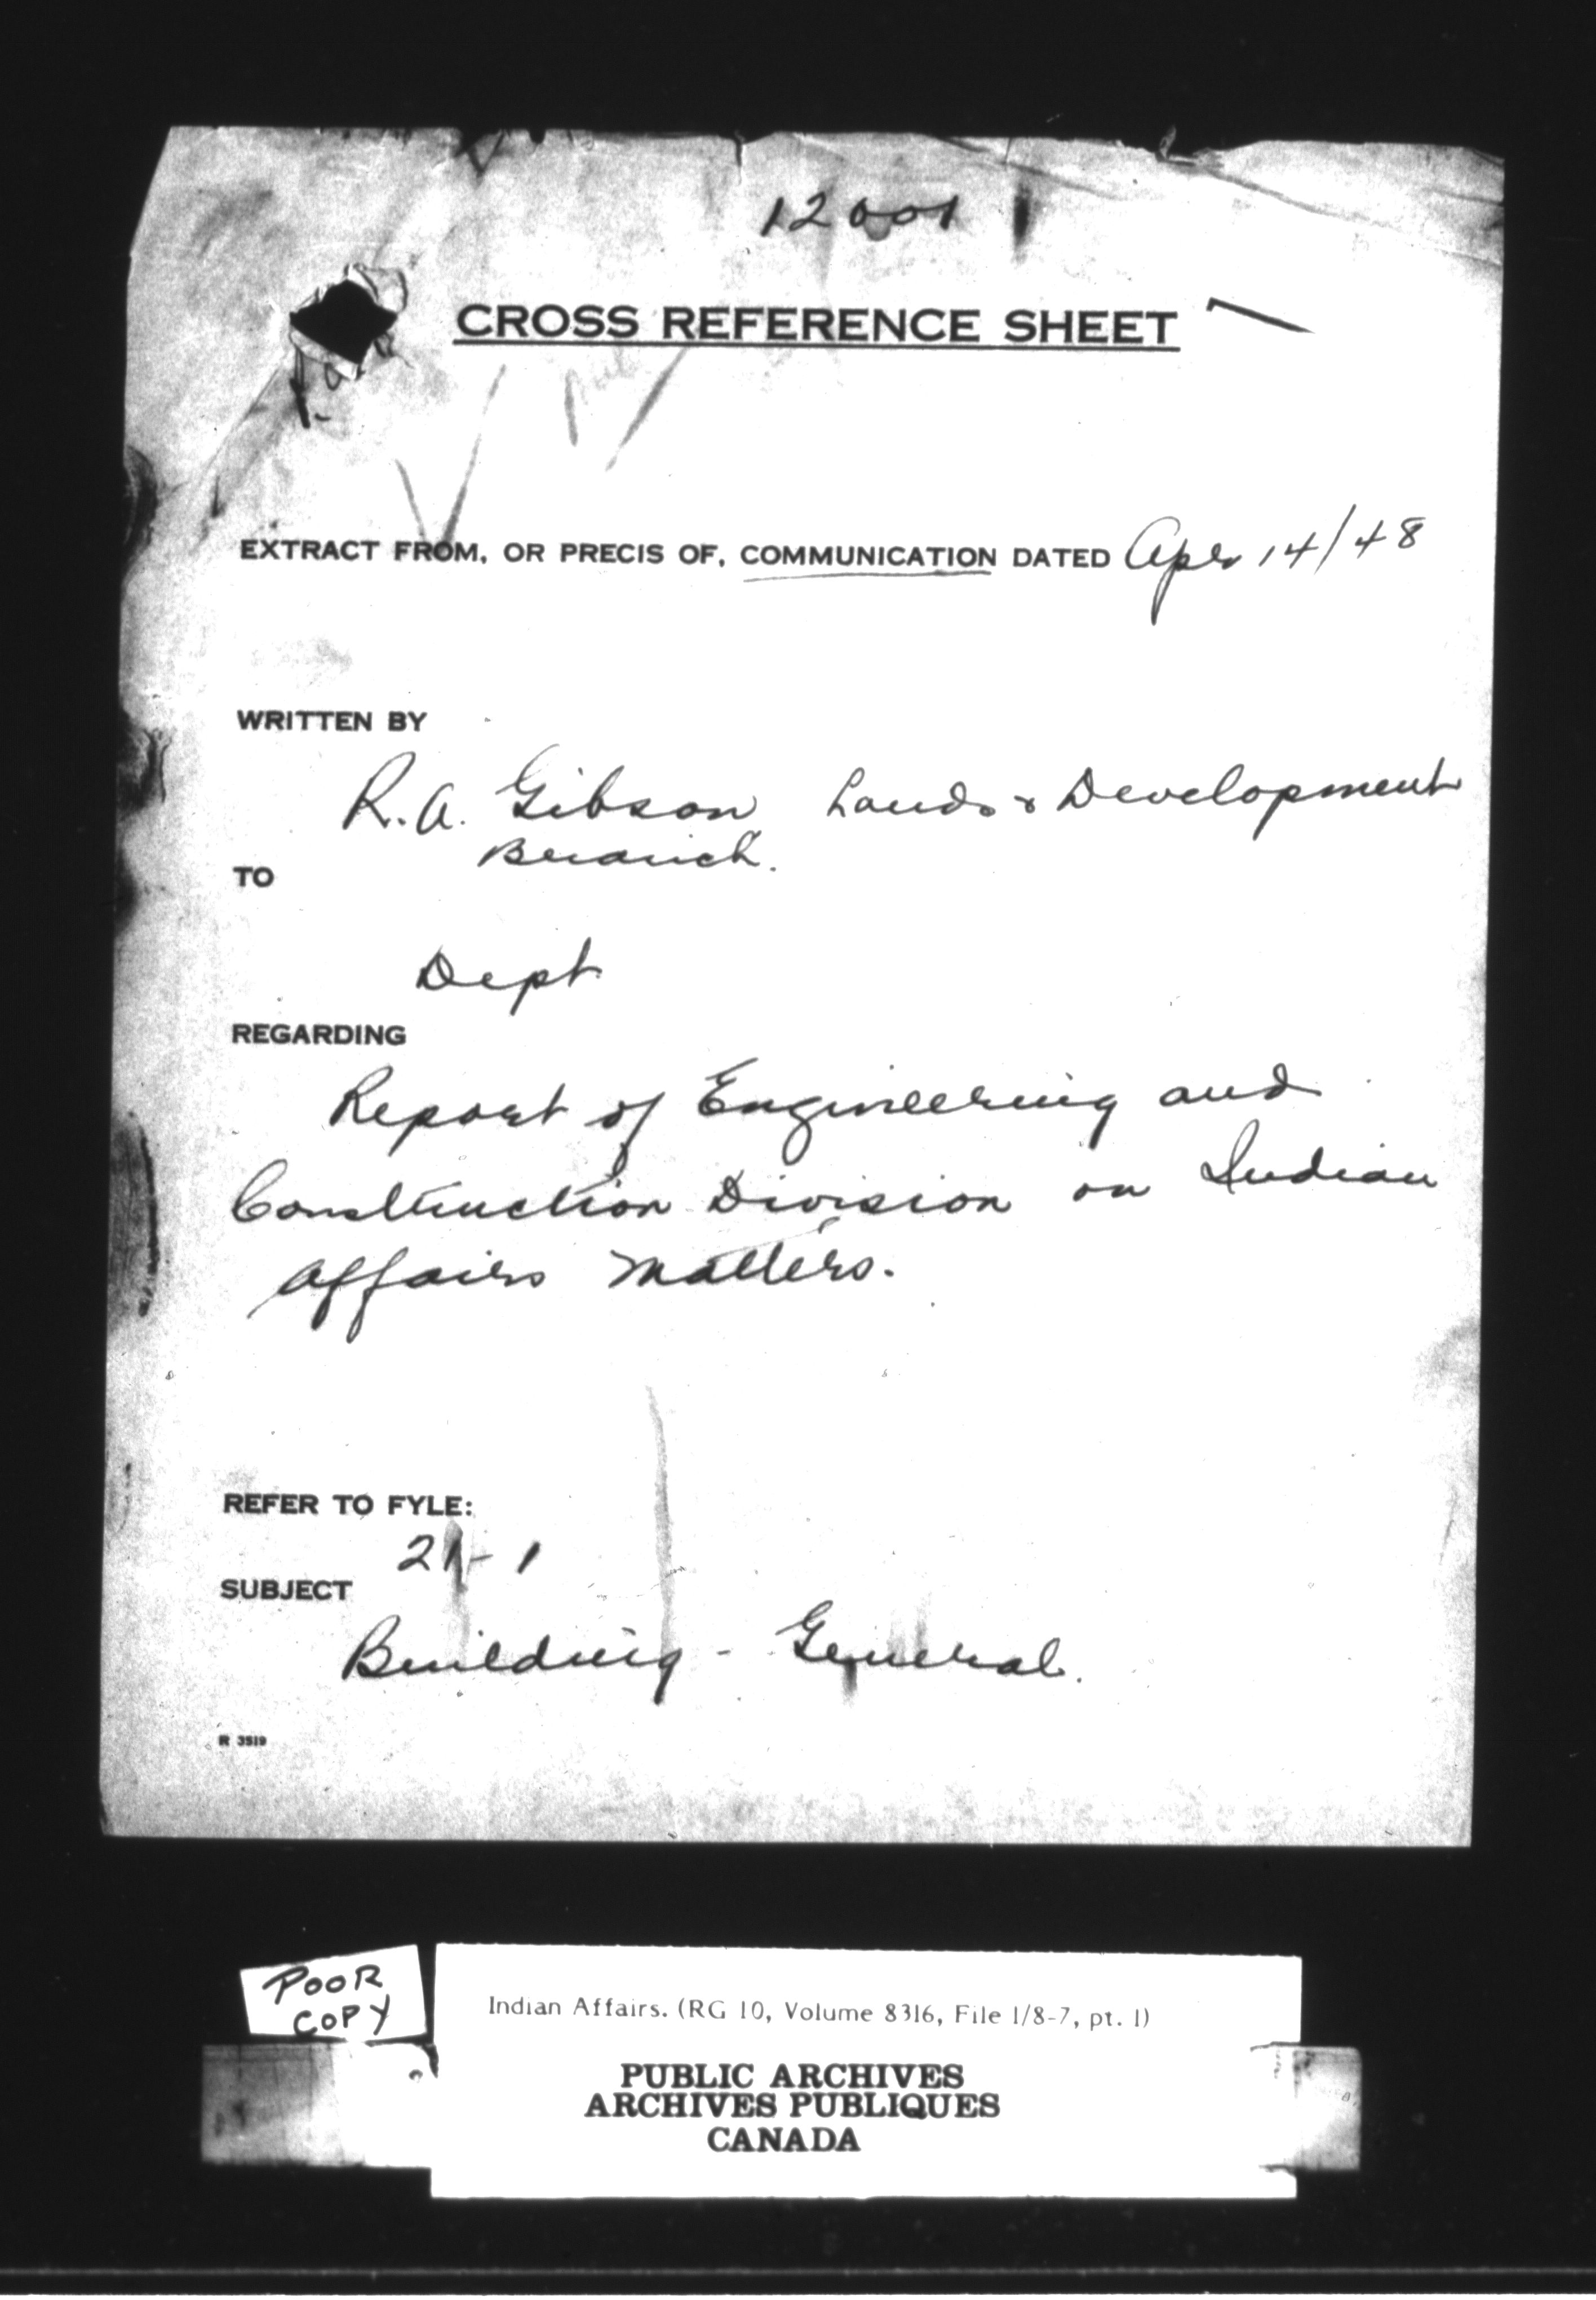 12001
CROSS REFERENCE SHEET
EXTRACT FROM, OR PRECIS OF, COMMUNICATION DATED Apr 14/48
WRITTEN BY
R.A. Gibson Lands & Development
Branch.
TO
Dept
REGARDING
Report of Engineering and
Construction Division on Indian
Affairs Matters.
REFER TO FYLE:
21-1
SUBJECT
Building - General.
R 3519
POOR
COPY
Indian Affairs. (RG 10, Volume 8316, File 1/8-7, pt. 1)
PUBLIC ARCHIVES
ARCHIVES PUBLIQUES
CANADA